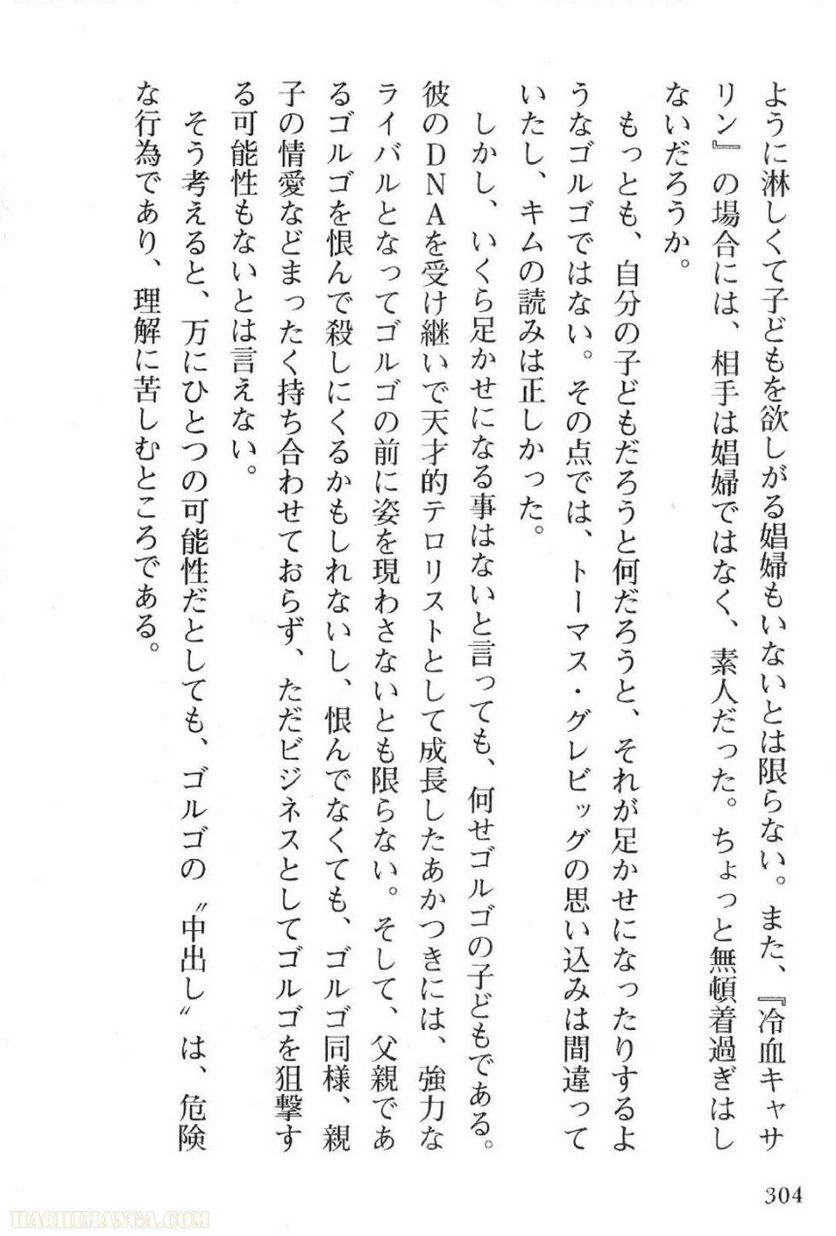 ように淋しくて子どもを欲しがる娼婦もいないとは限らない。また、『冷血キャサ
リン』の場合には、相手は娼婦ではなく、素人だった。ちょっと無頓着過ぎはし
ないだろうか。
もっとも、自分の子どもだろうと何だろうと、それが足かせになったりするよ
うなゴルゴではない。その点では、トーマス・グレビッグの思い込みは間違って
いたし、キムの読みは正しかった。
しかし、いくら足かせになる事はないと言っても、何せゴルゴの子どもである。
彼のＤＮＡを受け継いで天才的テロリストとして成長したあかつきには、強力な
ライバルとなってゴルゴの前に姿を現わさないとも限らない。そして、父親であ
るゴルゴを恨んで殺しにくるかもしれないし、恨んでなくても、ゴルゴ同様、親
子の情愛などまったく持ち合わせておらず、ただビジネスとしてゴルゴを狙撃す
る可能性もないとは言えない。
そう考えると、万にひとつの可能性だとしても、ゴルゴの〝中出し〟は、危険
な行為であり、理解に苦しむところである。
304
HACHIMANGA.COM